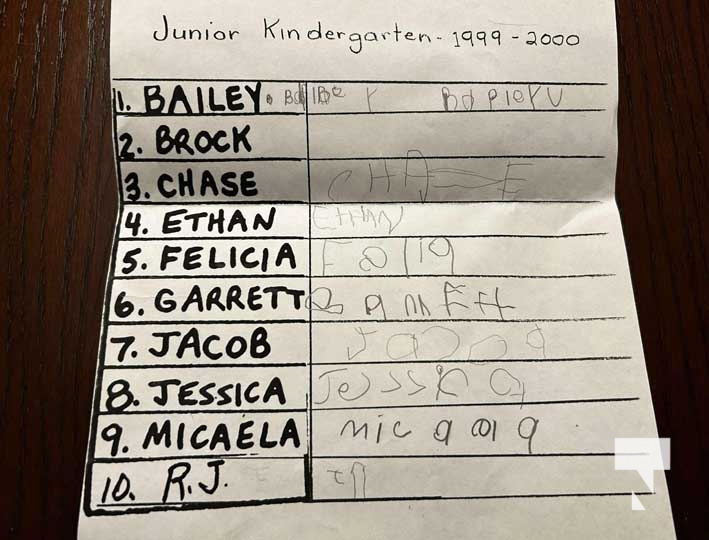 Junior Kindergarten - 1999 - 2000
1. BAILEY
2. BROCK
3. CHASE CHASE
4. ETHAN ETHAN
5. FELICIA
6. GARRETT
7. JACOB
8. JESSICA Jessica
9. MICAELA
10. R.J.